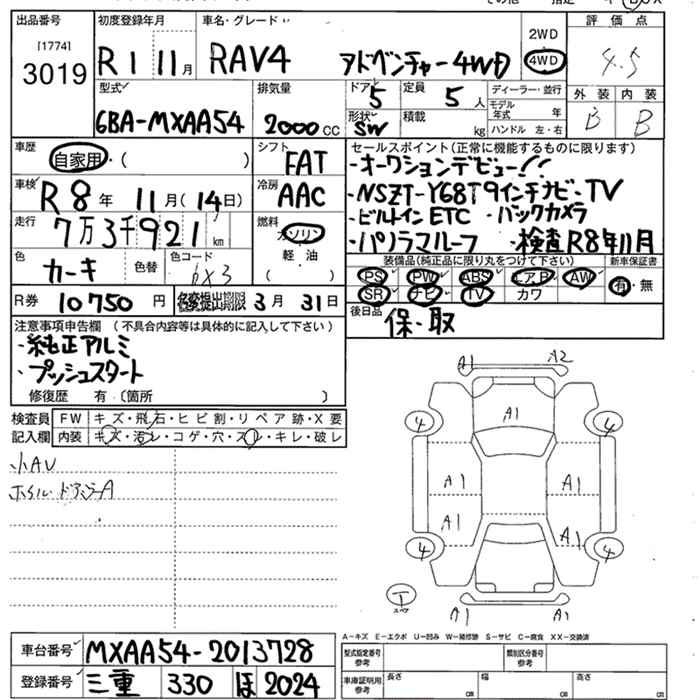 出品番号 初度登録年月 車名・グレード 評価点
[1774]
3019
R1 11月 RAV4 アドベンチャー4WD 2WD 4WD 4.5
型式 排気量 ドア 定員 ディーラー・並行 外装 内装
6BA-MXAA54 2000CC 5 5人 モデル年式 年 B B
形状 SW 積載 kg ハンドル 左・右
車歴 シフト セールスポイント(正常に機能するものに限ります)
自家用・( ) FAT ・オークションデビュー!!
車検 R8年11月(14日) 冷房 AAC ・NSZT-Y68T9インチナビ・TV
走行 7万3千921km 燃料 ・ビルトインETC ・バックカメラ
ガソリン
軽油
( )
・パノラマルーフ ・検査R8年11月
色 カーキ 色替 色コード 6X3
装備品(純正品に限り丸をつけて下さい) 新車保証書
PS PW ABS エアB AW 有・無
SR ナビ TV カワ
R券 10750円 名変提出期限 3月31日
後日品 保・取
注意事項申告欄(不具合内容等は具体的に記入して下さい)
・純正アルミ
・プッシュスタート
修復歴 有(箇所 )
検査員記入欄 FW キズ・飛石・ヒビ割・リペア跡・X要
内装 キズ・汚レ・コゲ・穴・スレ・キレ・破レ
小AU
ホイル ドアミラーA
A1 A2
A1
4 4
A1 A1
A1 A1
4 4
T
スペア
A1 A1
A－キズ E－エクボ U－凹み W－補修跡 S－サビ C－腐食 XX－交換済
車台番号 MXAA54-2013728
型式指定番号 参考 類別区分番号 参考
登録番号 三重 330 ほ 2024
車庫証明用 参考 長さ cm 幅 cm 高さ cm